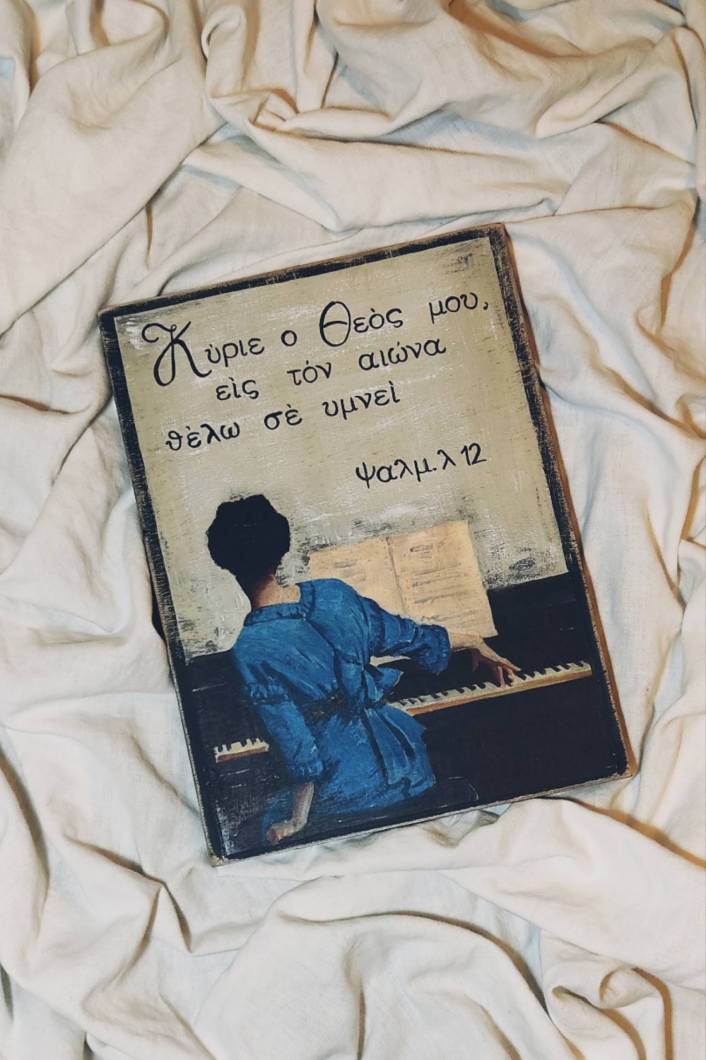 Κύριε ο Θεὸς μου,
εὶς τόν αιώνα
θὲλω σὲ υμνεὶ
ψαλμ.λ 12